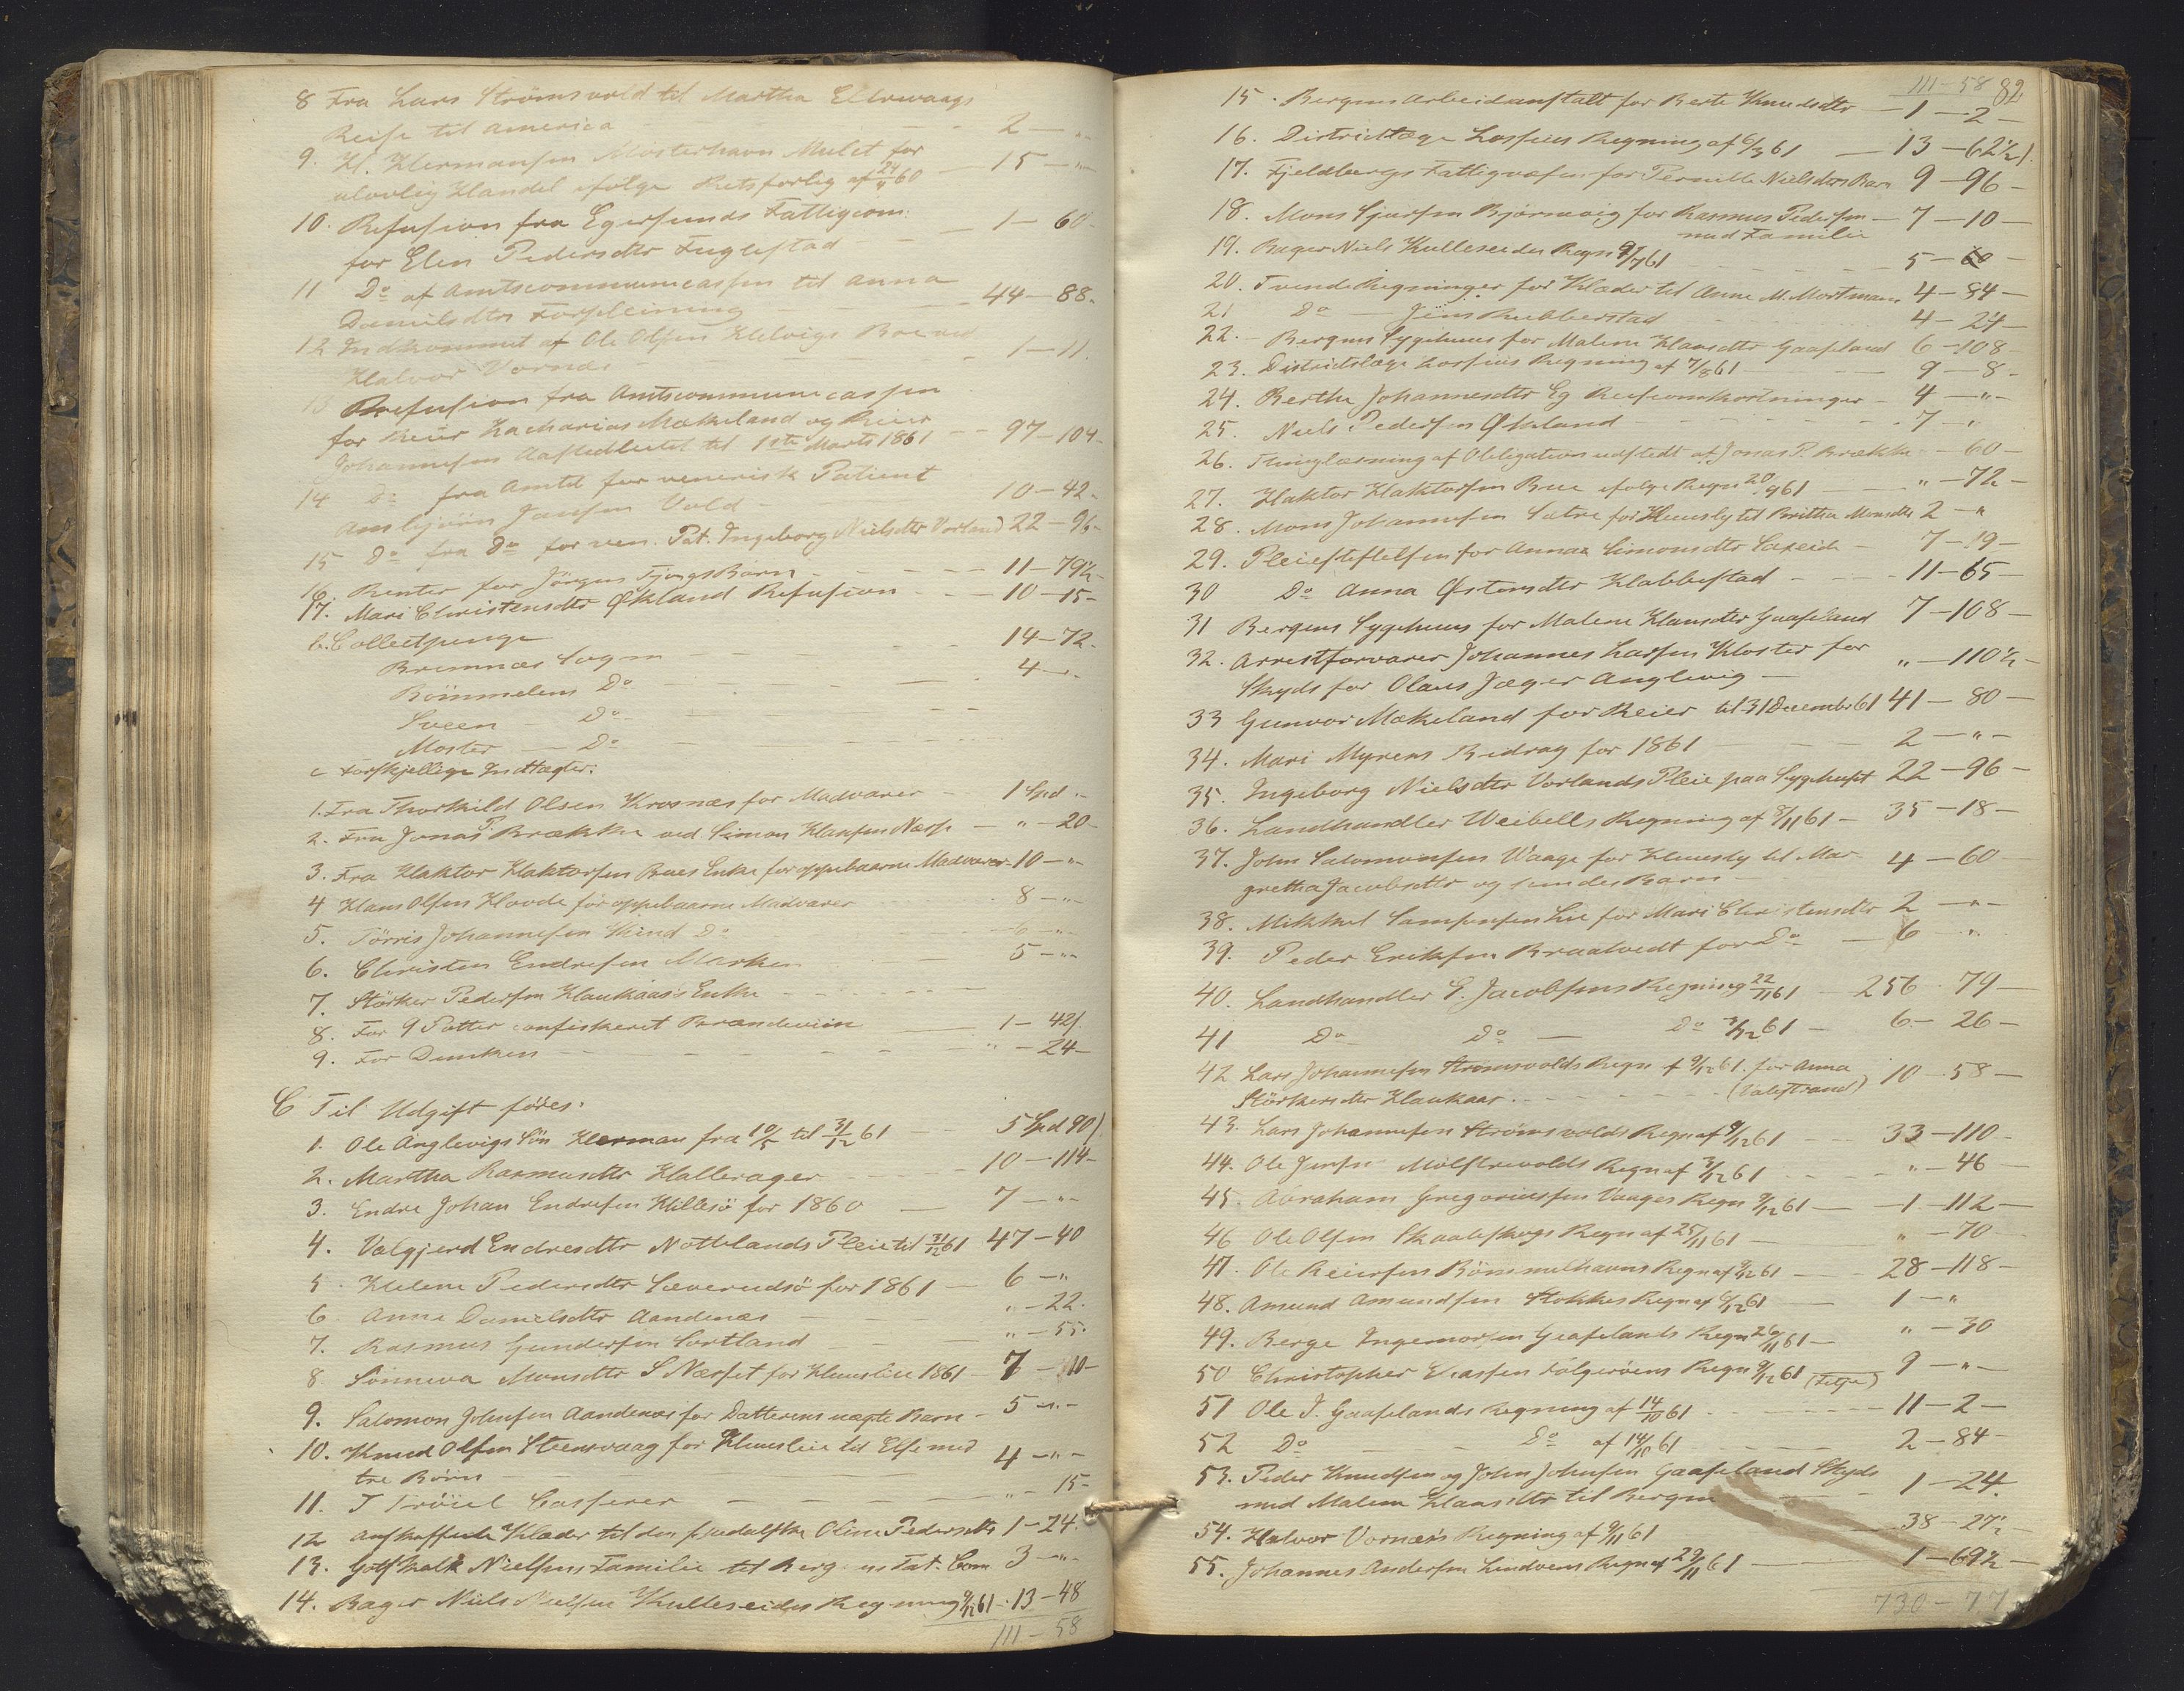 8 Fra Lars Strömsvold til Martha Ellewaags
Reise til America - - - 2 — "
9. H. Hermansen Mosterhavn Mulct for
ulovlig Handel ifölge Retsforlig af 24/11 60 — 15 — "
10. Refusion fra Egersunds Fattigcom:
for Elen Pedersdtr Fuglestad — 1 — 60 -
11 Do af Amtscommunecassen til Anna
Danielsdtrs Forpleining — 44 — 88 -
12 Indkommet af Ole Olsen Helvigs Bo ved
Halvor Vornæs — 1 — 11.
13 Refusion fra Amtscommunecassen
for Reier Zacharias Mækeland og Reier
Johannesen Aasheblutet til 1ste Marts 1861 — 97 — 104 -
14 Do fra Amtet for venerisk Patient
Ambjörn Jansen Vold — 10 — 42 -
15 Do fra Do for ven. Pat. Ingeborg Nielsdtr Vorland 22 — 96 -
16. Renter for Jörgen Fjongs Barn - - - 11 — 79½ -
17. Mari Christensdtr Økland Refusion - - - 10 — 15 -
b. Collectpenge
Bremnæs Sogn — 14 — 72 -
Bömmelens Do — 4 — " -
Sveen - Do
Moster — Do
c Forskjellige Indtægter:
1. Fra Thorkild Olsen Krosnæs for Madvarer — 1 Spd "-
2. Fra Jonas P. Brække ved Simon Hansen Næsse — " — 20 -
3. Fra Haktor Haktorsen Bues Enke for oppebaarne Madvarer 10 — "
4 Hans Olsen Hovde for oppebaarne Madvarer 8 — "
5. Törris Johannesen Skind Do 6 — "
6. Christen Endresen Marken 5 — "
7. Störker Pedersen Haukaas's Enke
8. For 9 Potter confiskeret Brændeviin — 1 — 42 ß.
9. For Dunken - - - " — 24 —
C Til Udgift föres:
1. Ole Anglevigs Sön Herman fra 10/5 til 31/12 61 — 5 Spd 90 ß
2. Martha Rasmusdtr Hallerager — 10 — 114 -
3. Endre Johan Endresen Hillesö for 1860 — 7 — "
4. Valgjerd Endresdtr Nottelands Pleie til 31/12 61 47 — 40
5. Helene Pedersdtr Sæverudsö for 1861 — 6 — "
6. Anna Danielsdtr Aandenæs — " — 22.
7. Rasmus Gundersen Sortland — " — 55.
8. Sönneva Monsdtr S Næsset for Huuslie 1861 — 7 — 10 —
9. Salomon Johnsen Aandenæs for Datterens uægte Barn — 5 — "
10. Knud Olsen Steensvaag for Huuslie til Else med 4 — " -
tre Börn
11. T Tröiel Casserer — " — 15 -
12 Anskaffede Klæder til den spedalske Oline Pedersdtr 1 — 24.
13. Gotskalk Nielsens Familie til Bergens Fat. Com 3 — "
14. Bager Niels Nielsen Kulleseides Regning 9/12 61 - 13 — 48
111 — 58
111 — 58 82
15. Bergens Arbeidanstalt for Berte Knudsdtr — 1 — 2 —
16. Districtlæge Lossius Regning af 6/3 61 — 13 — 62½ ß.
17. Fjeldbergs Fattigvæsen for Pernille Nielsdtrs Barn 9 — 96 —
18. Mons Sjursen Björnevig for Rasmus Pedersen — 7 — 10 —
med Familie
19. Bager Niels Kulleseides Regn 9/7 61 — 5 — 60 —
20. Tvende Regninger for Klæder til Anne M. Mortmann 4 — 84 —
21 Do — Jens Rubberstad — 4 — 24 —
22. Bergens Sygehuus for Malene Hansdtr Gaaseland 6 — 108 —
23. Districtslæge Lossius Regning af 7/8 61 — 9 — 8 -
24. Berthe Johannesdtr Eg Reiseomkostninger — 4 — " -
25. Niels Pedersen Økland - - - 7 — "
26. Thinglæsning af Obligation udstedt af Jonas P. Brække — 60 —
27. Haktor Haktorsen Bue ifölge Regn 20/9 61 — " — 72 —
28. Mons Johannesen Sætre for Huusly til Britha Monsdtr 2 — "
29. Pleiefteftelsen for Annae Simonsdtr Saxeide — 7 — 19 —
30 Do Anna Østensdtr Habbestad — 11 — 65 —
31 Bergens Sygehuus for Malene Hansdtr Gaaseland 7 — 108 —
32. Arrestforvarer Johannes Larsen Kloster for " — 110½ —
Skyds for Olaus Jæger Anglevig —
33 Gunvor Mækeland for Reier til 31 December 61 41 — 80 —
34. Mari Myrens Bidrag for 1861 — 2 — " —
35. Ingeborg Nielsdtr Vorlands Pleie paa Sygehuset 22 — 96 —
36. Landhandler Weibells Regning af 8/11 61 — 35 — 18 —
37. John Salomonsen Waage for Huusly til Mar- 4 — 60
gretha Jacobsdtr og hendes Barn —
38. Mikkel Samsonsen Lie for Mari Christensdtr 2 — " —
39. Peder Eriksen Braatvedt for Do — 6 — "
40. Landhandler G. Jacobsens Regning 22/11 61 — 256 - 79 —
41 Do Do — Do 3/12 61 — 6 — 26 —
42 Lars Johannesen Strömsvolds Regn af 9/12 61 for Anna 10 - 58 —
Störkersdtr Haukaas - - - (Valestrand)
43. Lars Johannesen Strömsvolds Regn af 9/12 61 — 33 — 110 -
44. Ole Jensen Mölstrevolds Regn af 3/12 61 - - " — 46
45. Abraham Gregoriussen Vaages Regn 9/12 61 — 1 - 112 —
46 Ole Olsen Skaaleskogs Regn af 25/11 61 — " — 70
47. Ole Reiersen Bömmelhavns Regn af 9/12 61 — 28 — 118 —
48. Amund Amundsen Stokkes Regn af 6/12 61 — 1 — "
49. Berge Ingemorsen Gaaselands Regn 26/11 61 — " — 30
50 Christopher Eliassen Folgeröens Regn 9/12 61 (Fitje) 9 — " —
51 Ole J. Gaaselands Regning af 14/10 61 - - - 11 — 2 —
52 Do — Do af 14/10 61 — 2 — 84 —
53. Peder Knudsen og John Johnsen Gaaseland Skyds 1 — 24
med Malene Hansdtr til Bergen
54. Halvor Vornæs's Regning af 9/11 61 — 38 — 27½ —
55. Johannes Andersen Lindöens Regn af 29/11 61 — 1 — 69½ —
730 — 77